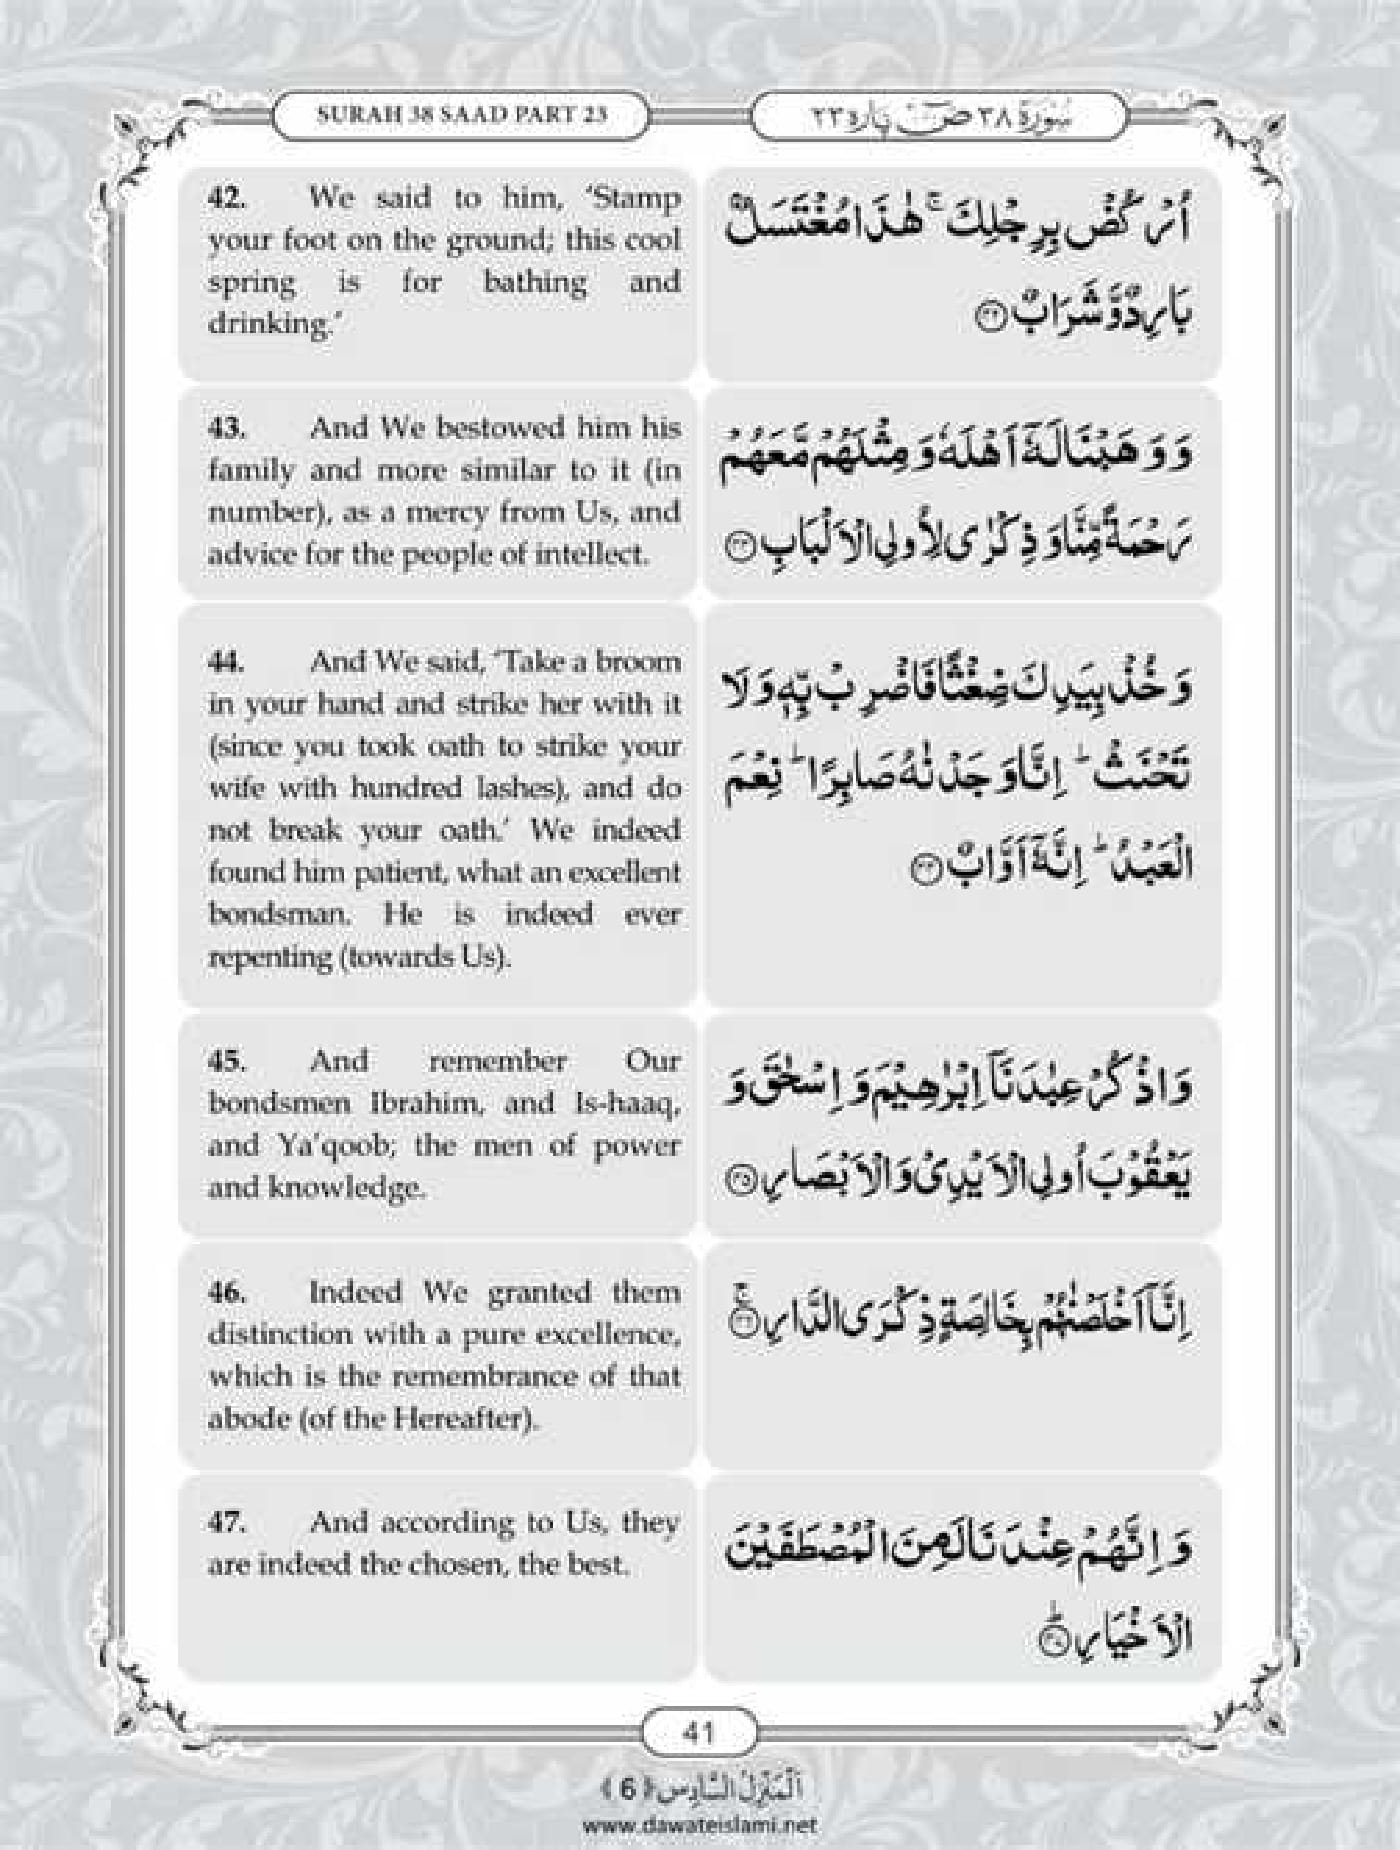 SURAH 38 SAAD PART 23
سُوْرَة ٣٨ صٓ پاره ٢٣
42. We said to him, ‘Stamp
your foot on the ground; this cool
spring is for bathing and
drinking.’
اُرْكُضْ بِرِجْلِكَ ۚ هٰذَا مُغْتَسَلٌۢ
بَارِدٌ وَّشَرَابٌ ﴿۴۲﴾
43. And We bestowed him his
family and more similar to it (in
number), as a mercy from Us, and
advice for the people of intellect.
وَ وَهَبْنَا لَهٗۤ اَهْلَهٗ وَ مِثْلَهُمْ مَّعَهُمْ
رَحْمَةً مِّنَّا وَ ذِكْرٰى لِاُولِی الْاَلْبَابِ ﴿۴۳﴾
44. And We said, ‘Take a broom
in your hand and strike her with it
(since you took oath to strike your
wife with hundred lashes), and do
not break your oath.’ We indeed
found him patient, what an excellent
bondsman. He is indeed ever
repenting (towards Us).
وَ خُذْ بِیَدِكَ ضِغْثًا فَاضْرِبْ بِّهٖ وَ لَا
تَحْنَثْ ؕ اِنَّا وَجَدْنٰهُ صَابِرًا ؕ نِعْمَ
الْعَبْدُ ؕ اِنَّهٗۤ اَوَّابٌ ﴿۴۴﴾
45. And remember Our
bondsmen Ibrahim, and Is-haaq,
and Ya’qoob; the men of power
and knowledge.
وَ اذْكُرْ عِبٰدَنَاۤ اِبْرٰهِیْمَ وَ اِسْحٰقَ وَ
یَعْقُوْبَ اُولِی الْاَیْدِیْ وَ الْاَبْصَارِ ﴿۴۵﴾
46. Indeed We granted them
distinction with a pure excellence,
which is the remembrance of that
abode (of the Hereafter).
اِنَّاۤ اَخْلَصْنٰهُمْ بِخَالِصَةٍ ذِكْرَى الدَّارِ ﴿ۚ۴۶﴾
47. And according to Us, they
are indeed the chosen, the best.
وَ اِنَّهُمْ عِنْدَنَا لَمِنَ الْمُصْطَفَیْنَ
الْاَخْیَارِ ﴿ؕ۴۷﴾
41
اَلْمَنْزِلُ السَّادِس ﴿6﴾
www.dawateislami.net